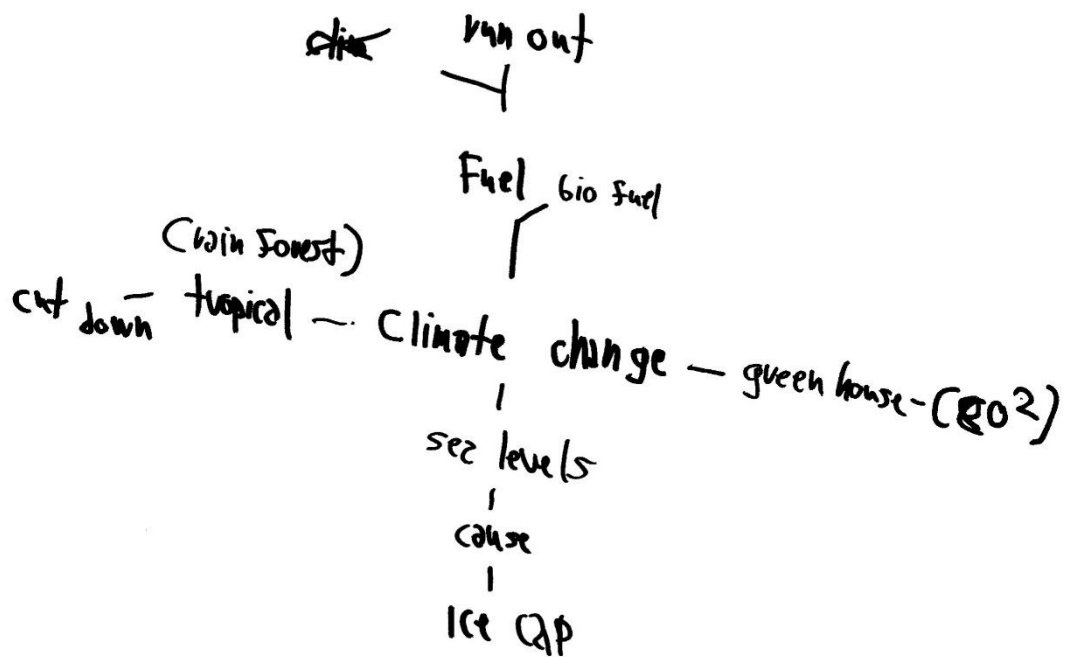 run out
Fuel bio fuel
(rain Forest)
cut down - tropical - Climate change - green house - (CO2)
sea levels
cause
Ice cap